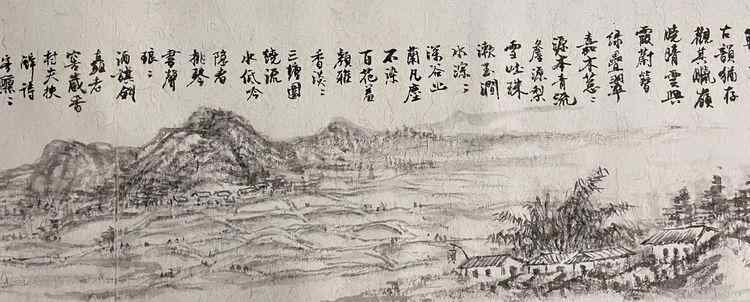 古韻猶存
觀其臘嶺
曉晴雲興
霞蔚簪
綠疊翠
嘉木蔥〻
源本青流
詹源梨
雪吐珠
漱玉澗
水潺〻
深谷幽
蘭凡塵
不染
百花羞
顏雅
香淡〻
三塘圍
繞源
水低吟
隱者
撫琴
書聲
琅〻
酒旗斜
矗老
窖藏香
村夫挾
醉詩